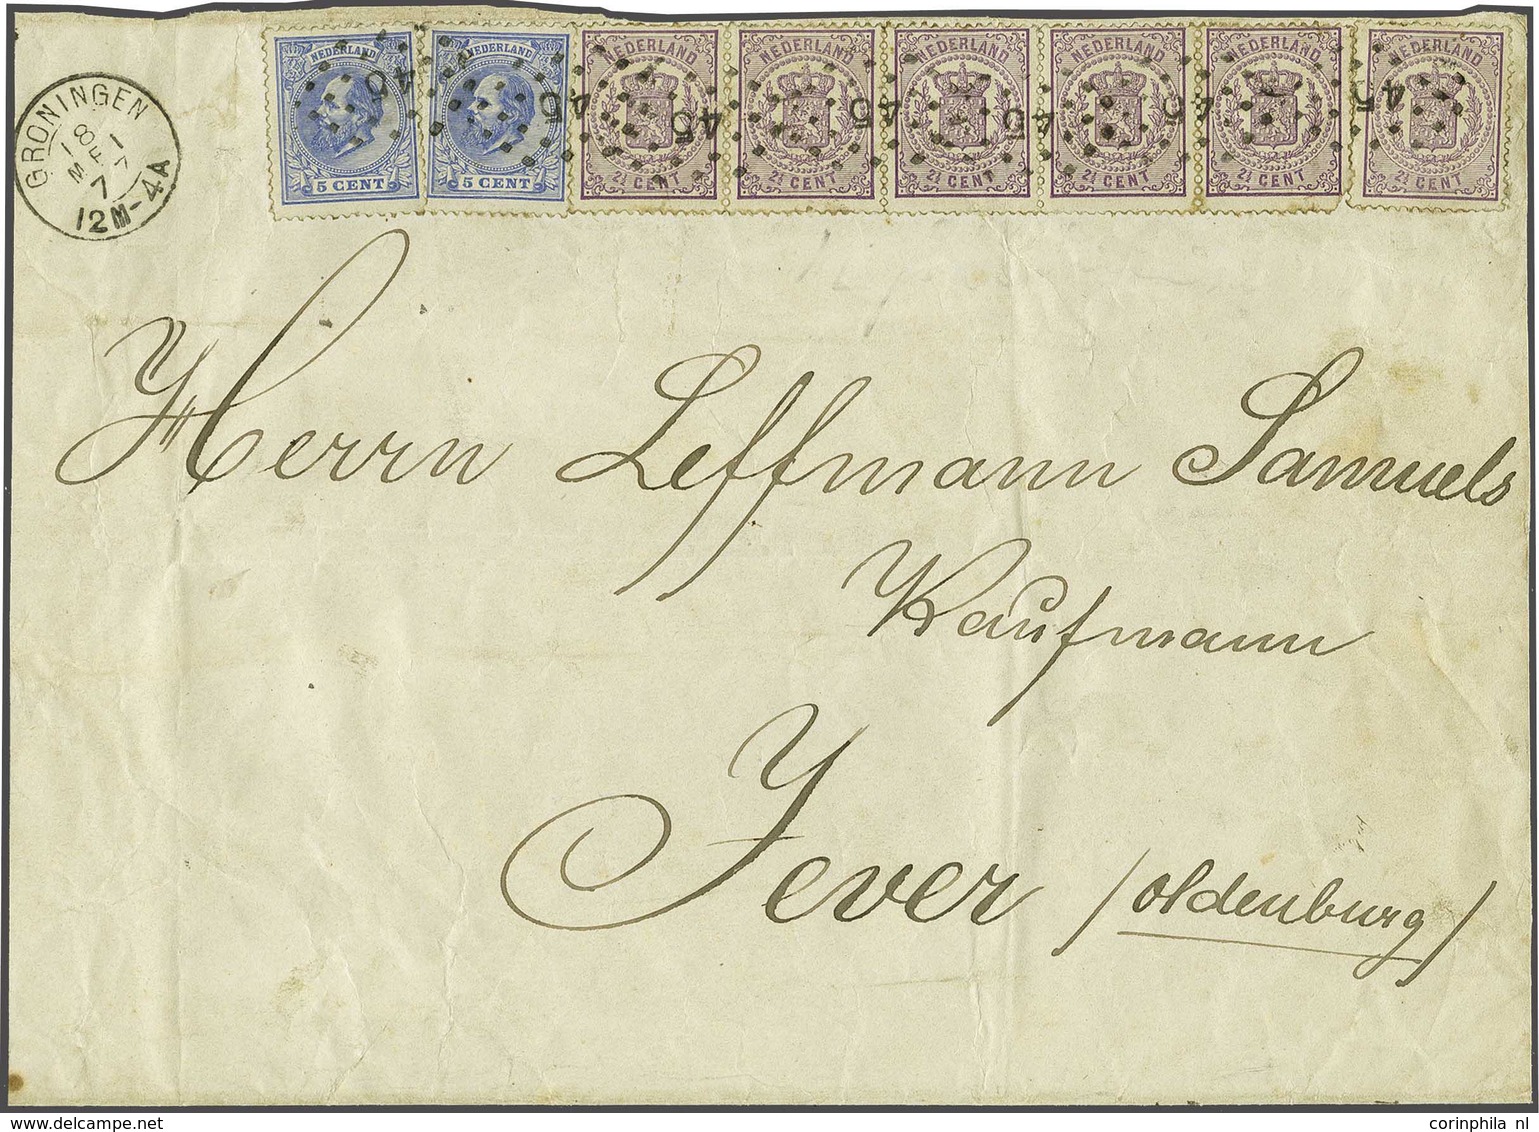 GRONINGEN
18 1
MEI 7
7
12M-4A
NEDERLAND NEDERLAND NEDERLAND NEDERLAND NEDERLAND NEDERLAND NEDERLAND NEDERLAND
45 45 45 45 45 45 45
5 CENT 5 CENT 2½ CENT 2½ CENT 2½ CENT 2½ CENT 2½ CENT 2½ CENT
Herrn Leffmann Samuels
Kaufmann
Jever /Oldenburg/
corinphila nl